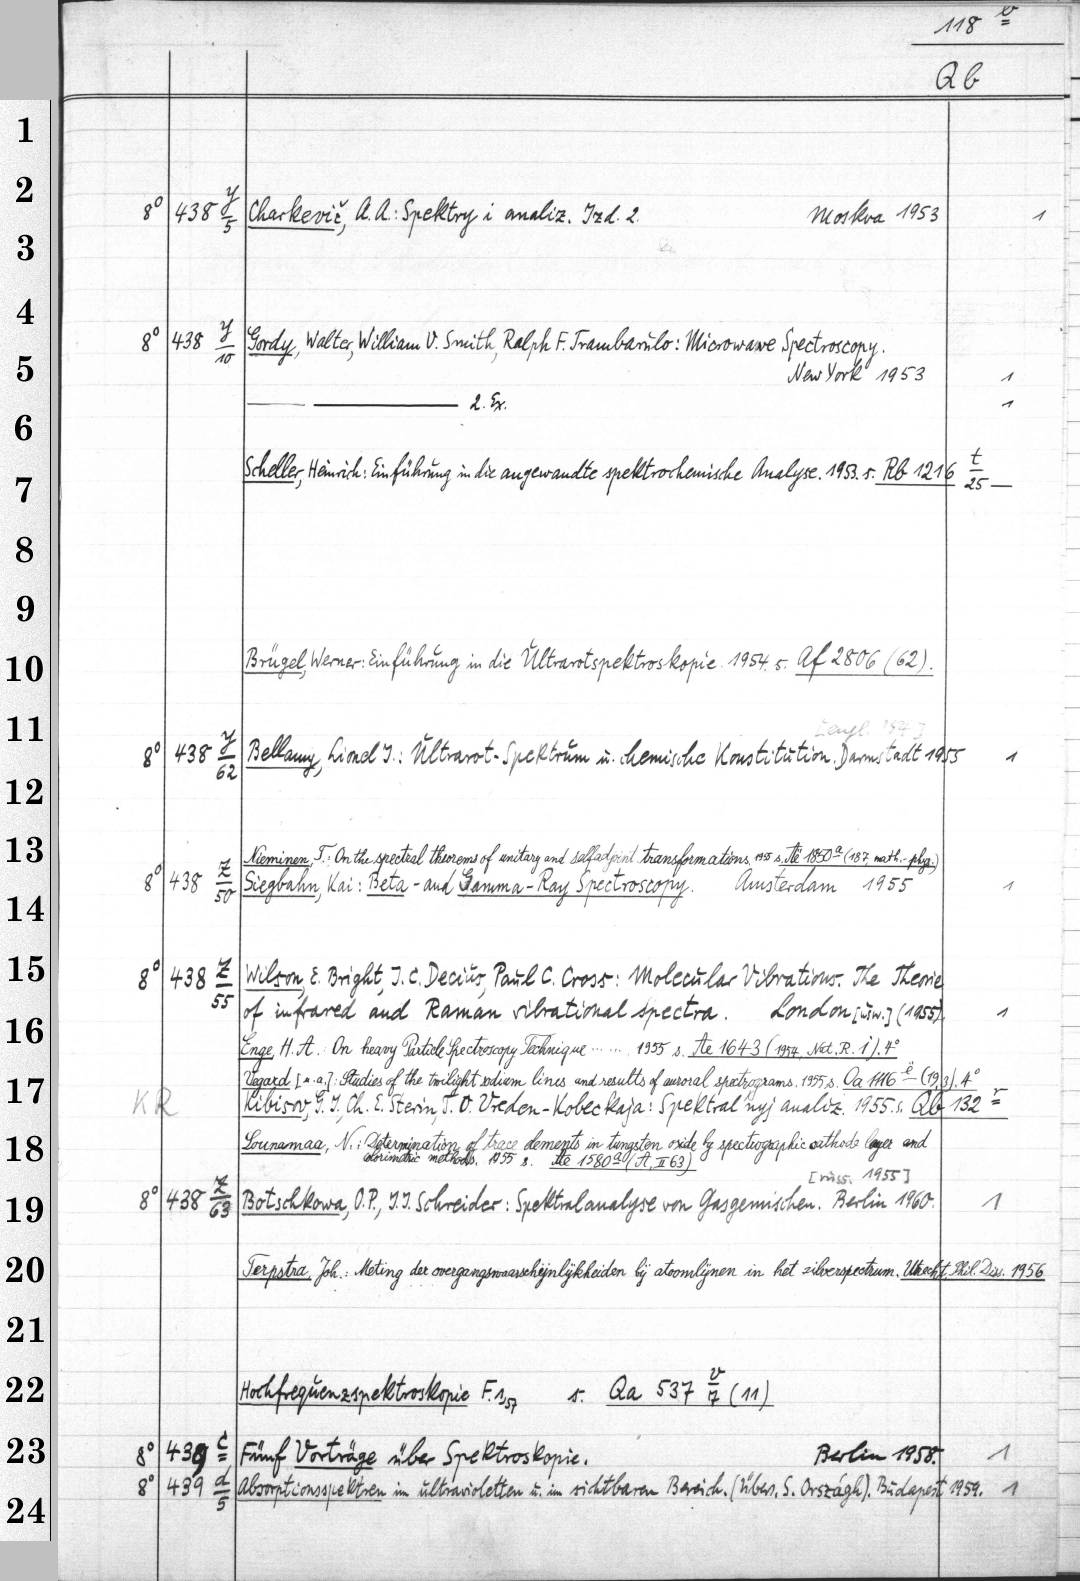 118 v
Qb
1
2
8° 438 y/5 Charkevič, A. A.: Spektry i analiz. Izd. 2. Moskva 1953 1
3
4
8° 438 y/10 Gordy, Walter, William V. Smith, Ralph F. Trambarulo: Microwawe Spectroscopy.
5 New York 1953 1
—— ———— 2. Ex. 1
6
Scheller, Heinrich: Einführung in die angewandte spektrochemische Analyse. 1953. s. Rb 1216 t/25
7
8
9
10 Brügel, Werner: Einführung in die Ultrarotspektroskopie. 1954. s. Af 2806 (62).
11 [engl. ]
8° 438 y/62 Bellamy, Lionel J.: Ultrarot-Spektrum u. chemische Konstitution. Darmstadt 1955 1
12
13 Nieminen, T.: On the spectral theorems of unitary and selfadjoint transformations. 1955 s. Ae 1850 a (187, math.-phys.)
8° 438 z/50 Siegbahn, Kai: Beta- and Gamma-Ray Spectroscopy. Amsterdam 1955 1
14
15 8° 438 z/55 Wilson, E. Bright, J. C. Decius, Paul C. Cross: Molecular Vibrations. The Theorie
of infrared and Raman vibrational spectra. London [usw.] (1955). 1
16 Enge, H. A.: On heavy Particle Spectroscopy Technique ...... 1955 s. Ae 1643 (1954, Nat. R. 1). 4°
Vegard [u. a.]: Studies of the twilight sodium lines and results of auroral spectrograms. 1955. s. Oa 1116 e (19,3). 4°
17 KR Kibisov, G. I., Ch. E. Sterin, T. V. Vreden-Kobeckaja: Spektral'nyj analiz. 1955. s. Qb 132 r
18 Lounamaa, N.: Determination of trace elements in tungsten oxide by spectrographic cathode layer and
colorimetric methods. 1955 s. Ae 1580 a (A, II 63)
[russ. 1955]
19 8° 438 z/63 Botschkowa, O. P., I. I. Schreider: Spektralanalyse von Gasgemischen. Berlin 1960. 1
20 Terpstra, Joh.: Meting der overgangswaarschijnlijkheiden bij atoomlijnen in het zilverspectrum. Utrecht, Phil. Diss. 1956
21
22 Hochfrequenzspektroskopie F. 1,57 s. Qa 537 v/7 (11)
23 8° 439 c Fünf Vorträge über Spektroskopie. Berlin 1958. 1
8° 439 d/5 Absorptionsspektren im ultravioletten u. im sichtbaren Bereich. (Übers. S. Országh). Budapest 1959. 1
24